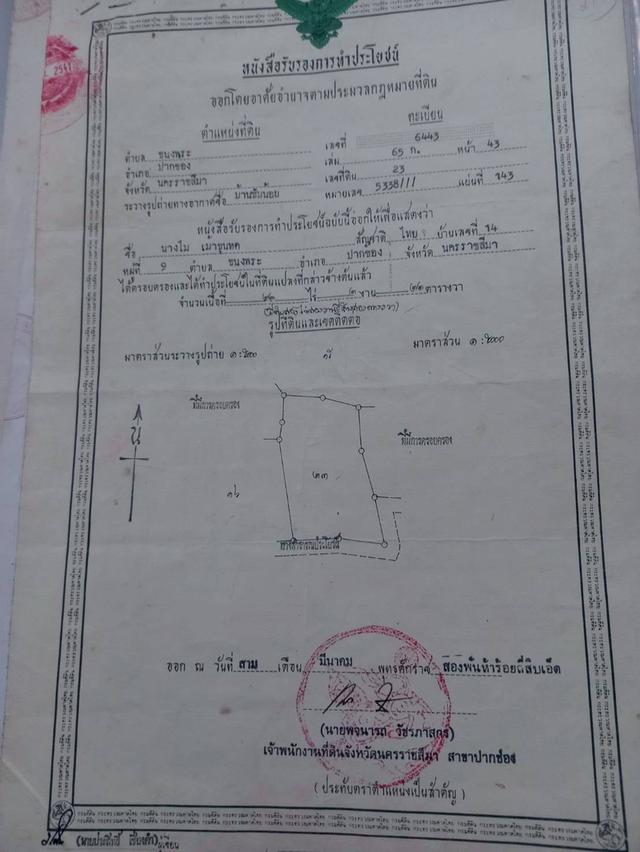 หนังสือรับรองการทำประโยชน์
ออกโดยอาศัยอำนาจตามประมวลกฎหมายที่ดิน
ตำแหน่งที่ดิน
ทะเบียน
ตำบล ขนงพระ
เลขที่ 6443
อำเภอ ปากช่อง
เล่ม 65 ก. หน้า 43
จังหวัด นครราชสีมา
เลขที่ดิน 23
ระวางรูปถ่ายทางอากาศชื่อ บ้านซับน้อย
หมายเลข 5338 III แผ่นที่ 143
หนังสือรับรองการทำประโยชน์ฉบับนี้ออกให้เพื่อแสดงว่า
ชื่อ นางไม เมาขุนทด สัญชาติ ไทย บ้านเลขที่ 14
หมู่ที่ 9 ตำบล ขนงพระ อำเภอ ปากช่อง จังหวัด นครราชสีมา
ได้ครอบครองและได้ทำประโยชน์ในที่ดินแปลงที่กล่าวข้างต้นแล้ว
จำนวนเนื้อที่ ไร่ งาน ตารางวา
รูปที่ดินและเขตติดต่อ
มาตราส่วนระวางรูปถ่าย
มาตราส่วน
ที่มีการครอบครอง
ที่มีการครอบครอง
น
๑๖
๒๓
ทางสาธารณประโยชน์
ออก ณ วันที่ สาม เดือน มีนาคม พุทธศักราช สองพันห้าร้อยสี่สิบเอ็ด
(นายพจนารถ วัชรภาสกร)
เจ้าพนักงานที่ดินจังหวัดนครราชสีมา สาขาปากช่อง
(ประทับตราตำแหน่งเป็นสำคัญ)